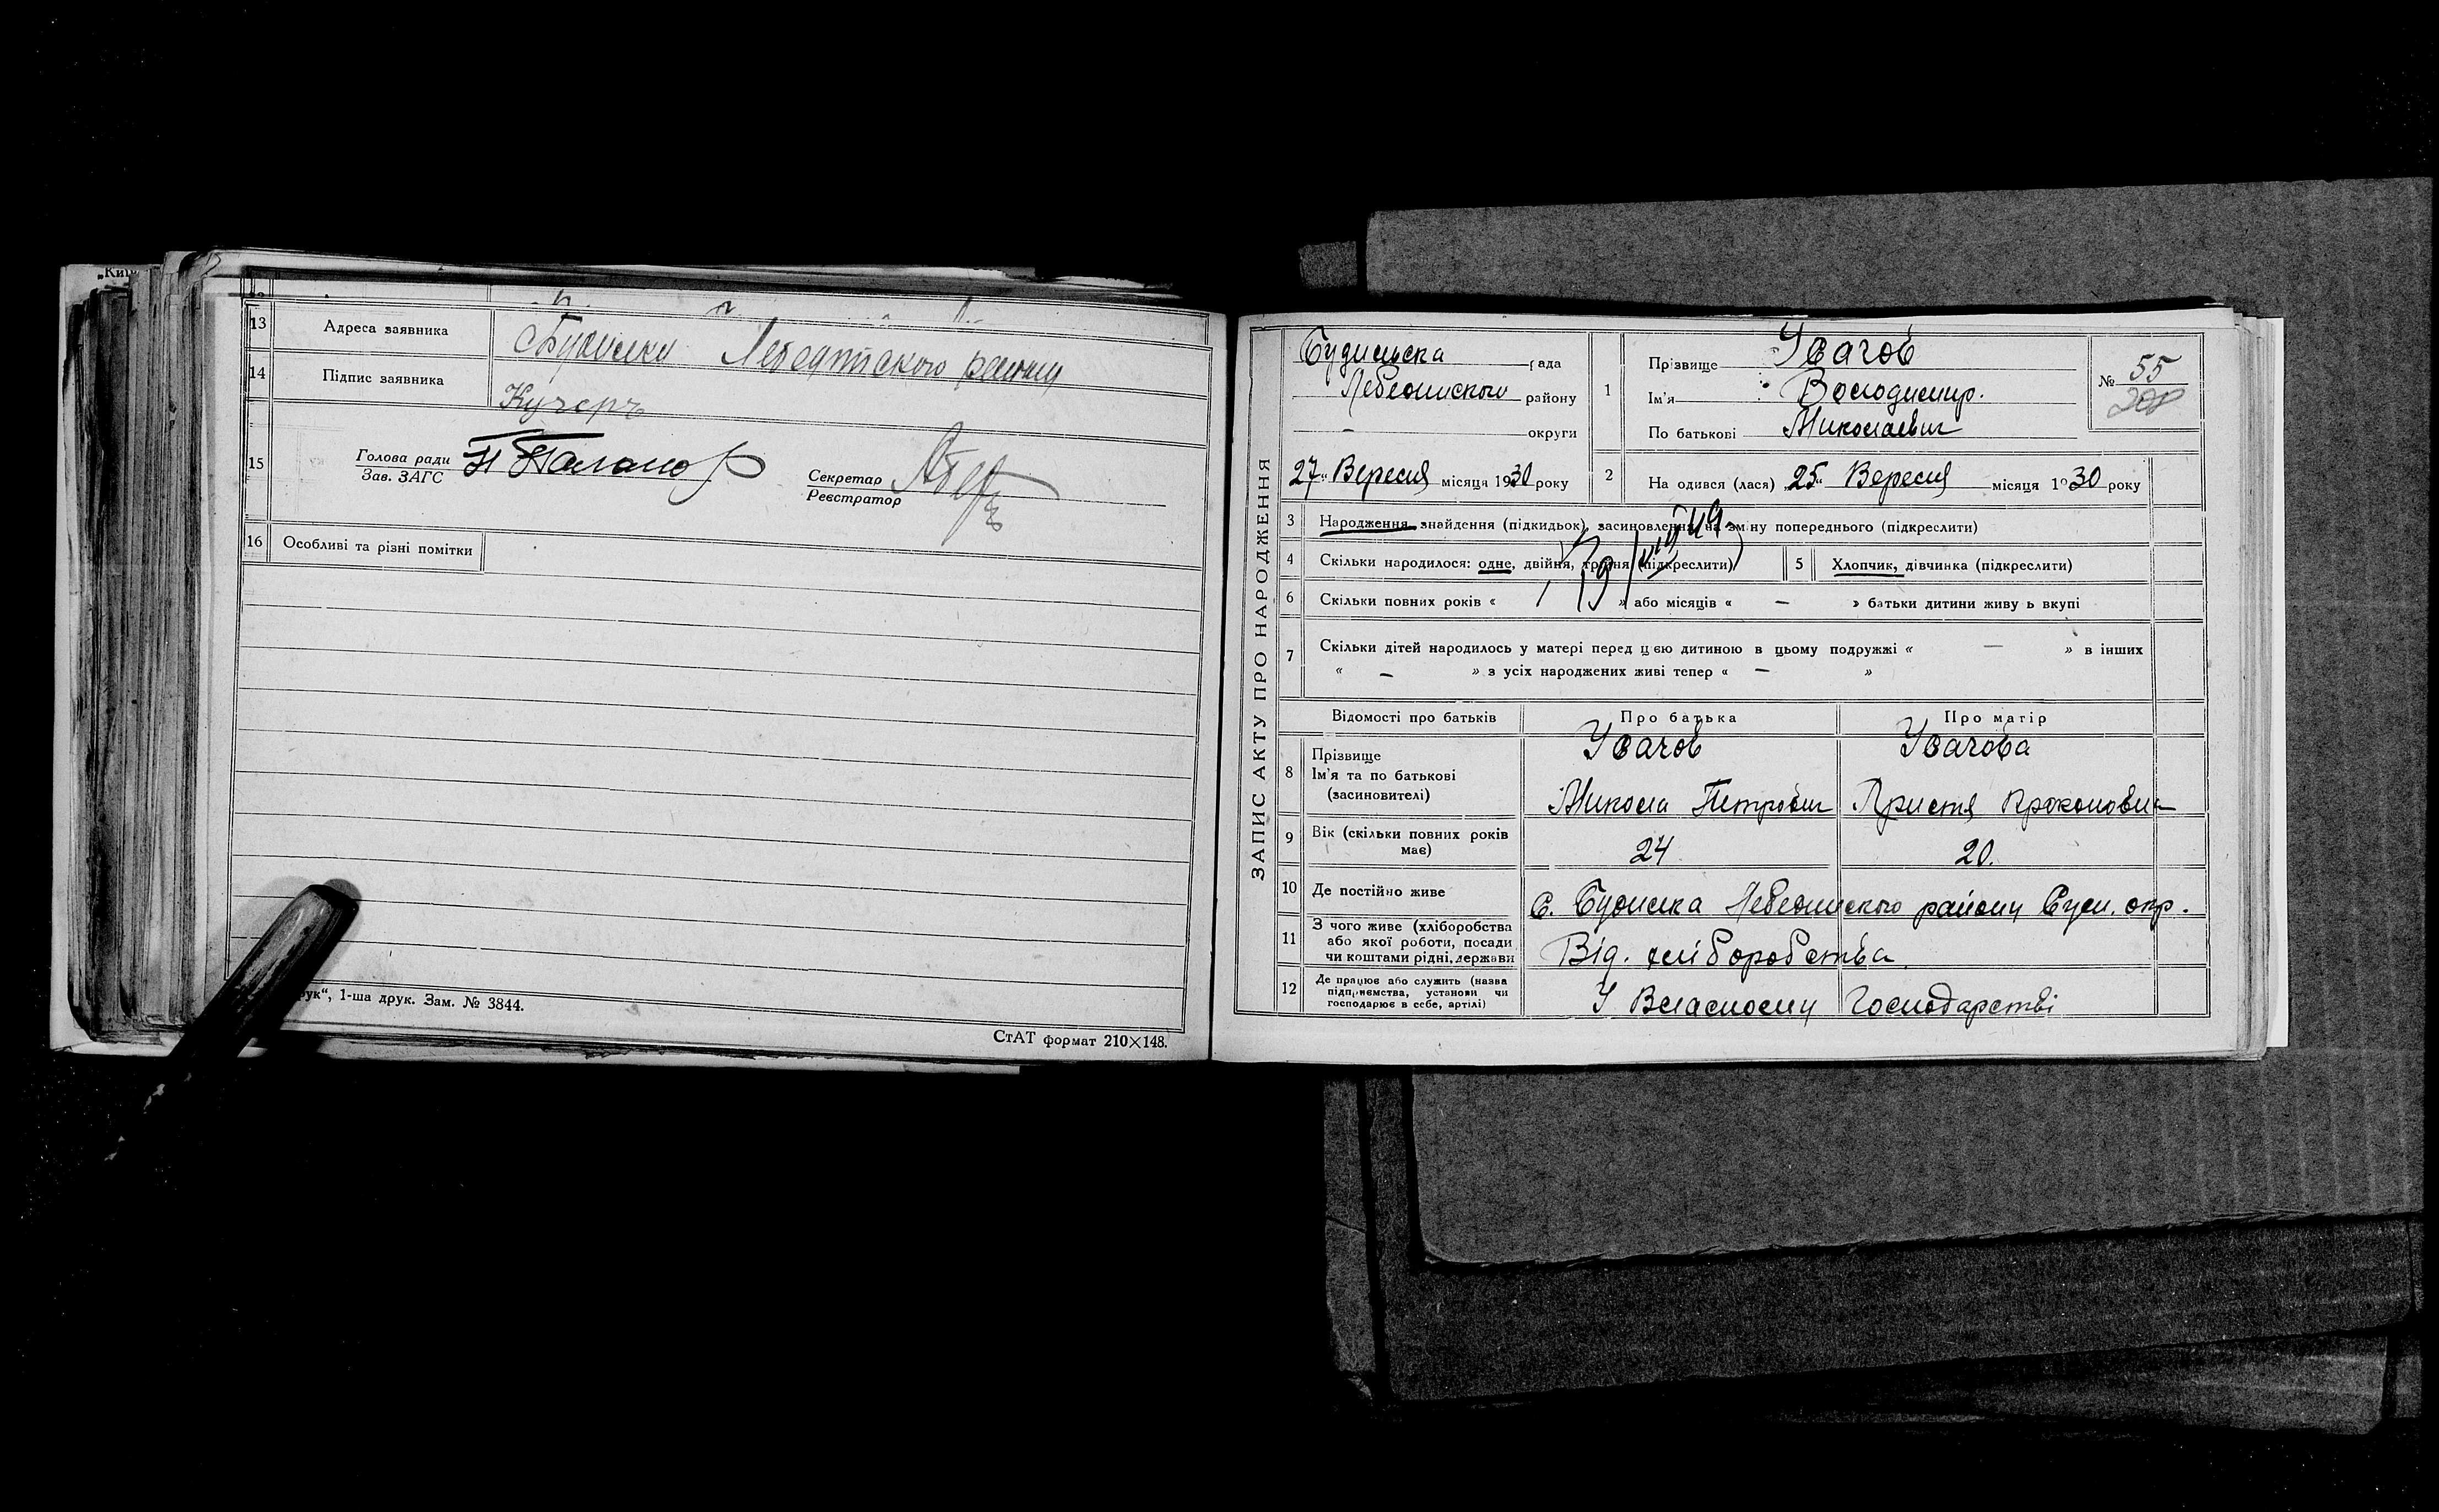 13 Адреса заявника с Будилки Лебединського району
14 Підпис заявника Кучеръ
15 Голова ради
Зав. ЗАГС
Секретар
Реєстратор
16 Особливі та різні помітки
рук“, 1-ша друк. Зам. № 3844.
СтАТ формат 210×148.
ЗАПИС АКТУ ПРО НАРОДЖЕННЯ
Будильська рада
Лебединського району
— округи
27 „ Вересня місяця 1930 року
1 Прізвище Увачов
Ім'я Володимир.
По батькові Миколаевич
№ 55
200
2 На одився (лася) „25“ Вересня місяця 1930 року
3 Народження знайдення (підкидьок), засиновлення на зміну попереднього (підкреслити)
4 Скільки народилося: одне, двійня, трійня (підкреслити)
5 Хлопчик, дівчинка (підкреслити)
6 Скільки повних років « » або місяців « — » батьки дитини живу ь вкупі
7 Скільки дітей народилось у матері перед цєю дитиною в цьому подружжі « — » в інших
« — » з усіх народжених живі тепер « — »
Відомості про батьків Про батька Про матір
8 Прізвище Увачов Увачова
Ім'я та по батькові
(засиновителі) Микола Петрович Христя Прокоповна
9 Вік (скільки повних років
має) 24 20.
10 Де постійно живе С. Будилка Лебединского району Сум. окр.
11 З чого живе (хліборобства
або якої роботи, посади
чи коштами рідні, держави Від. хліборобства
12 Де працює або служить (назва
підприємства, установи чи
господарює в себе, артілі) У Власному Господарстві